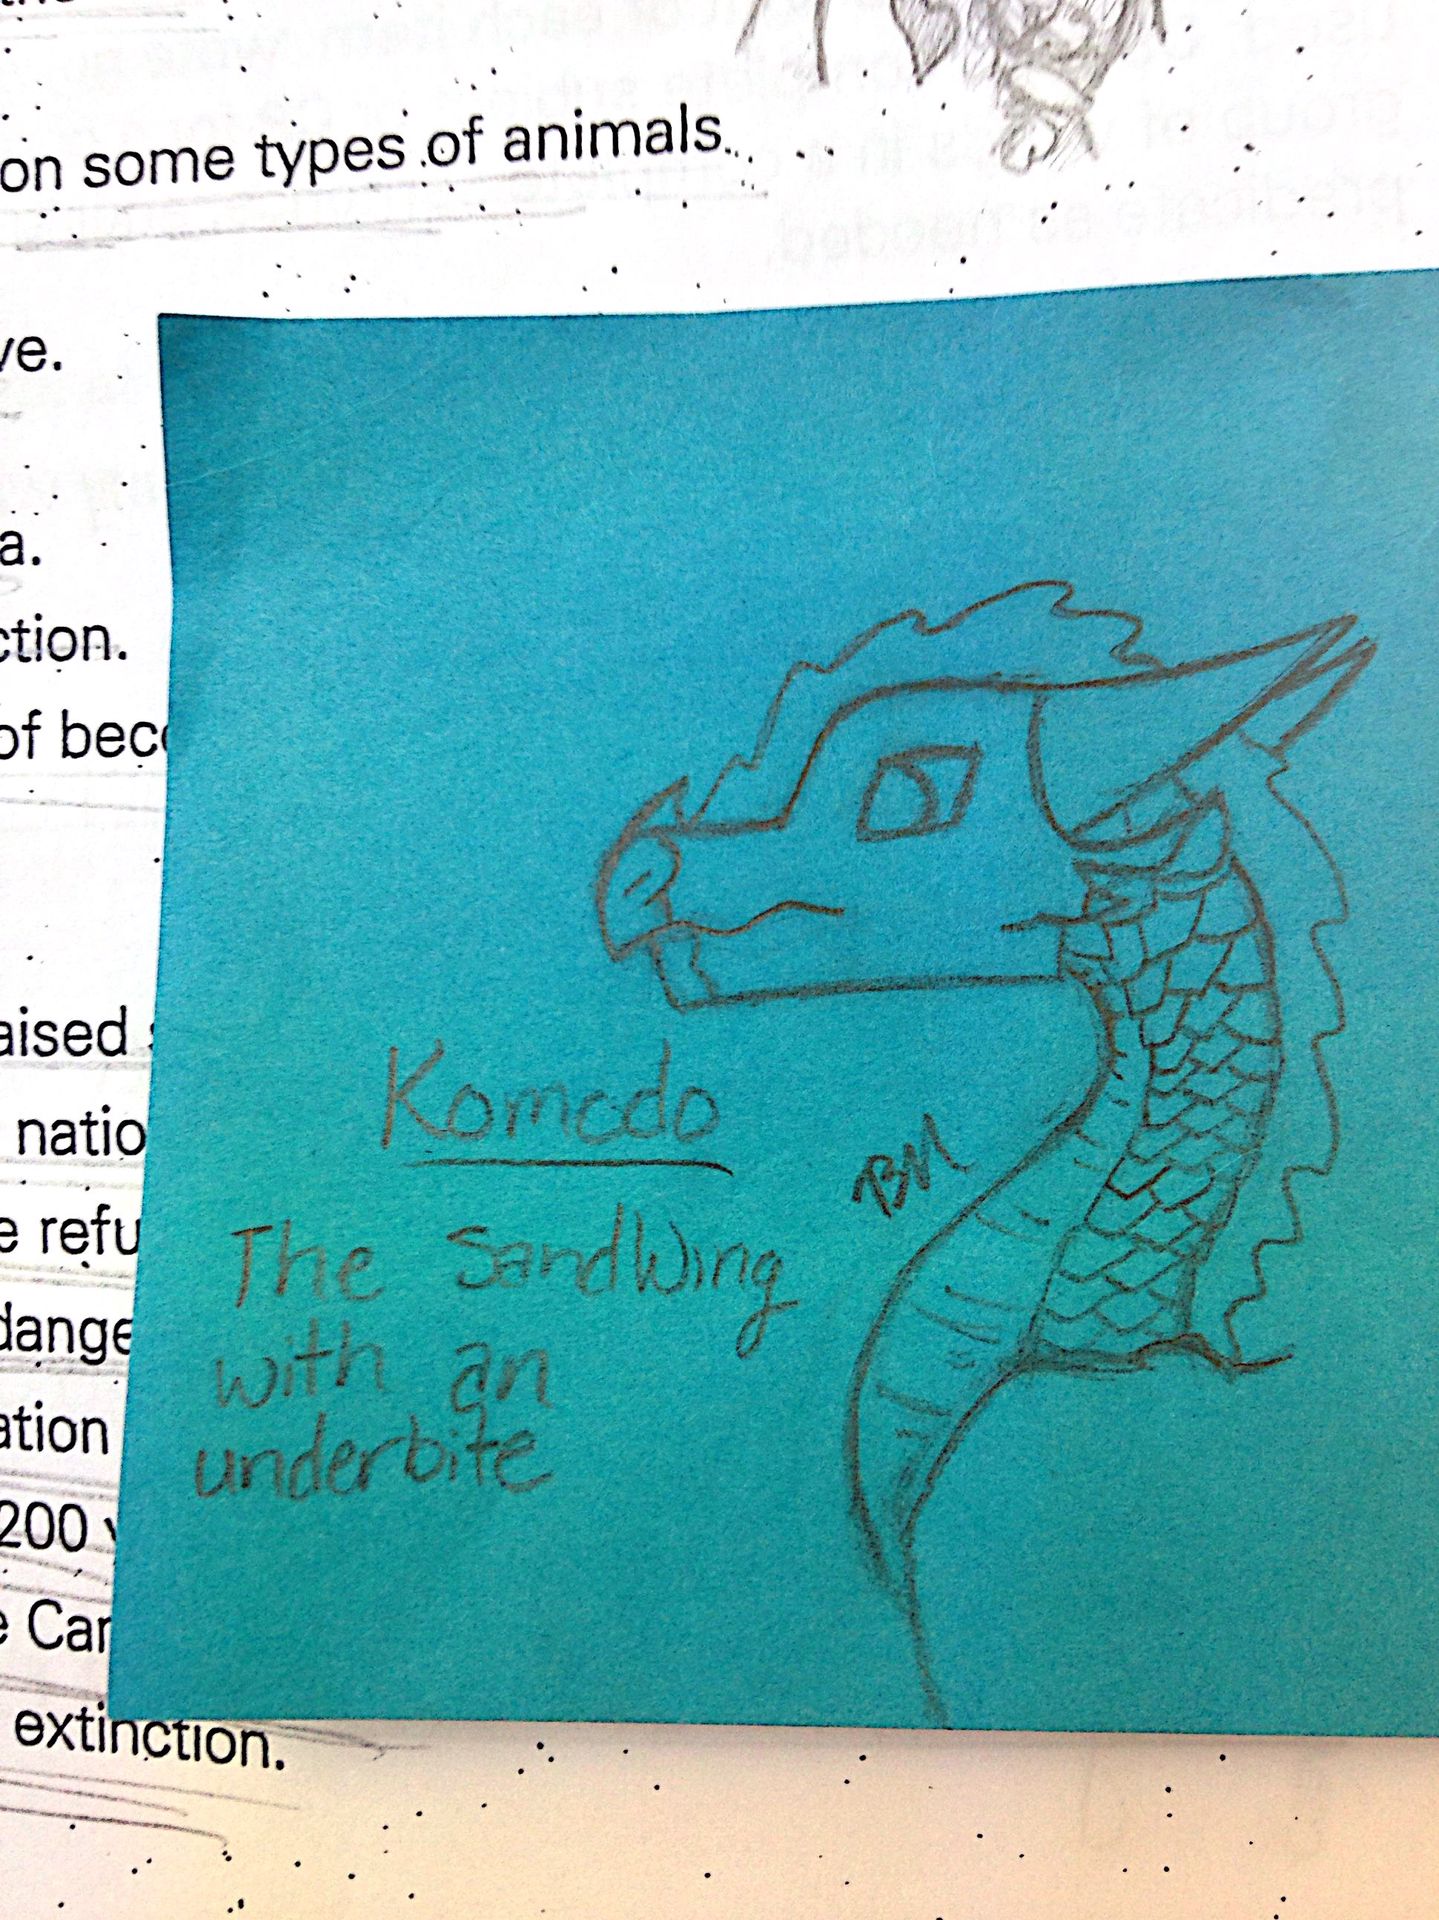 on some types of animals.
ve.
a.
ction.
of beco
Komodo
BM
The SandWing
with an
underbite
aised
natio
e refu
dange
ation
200
e Car
extinction.